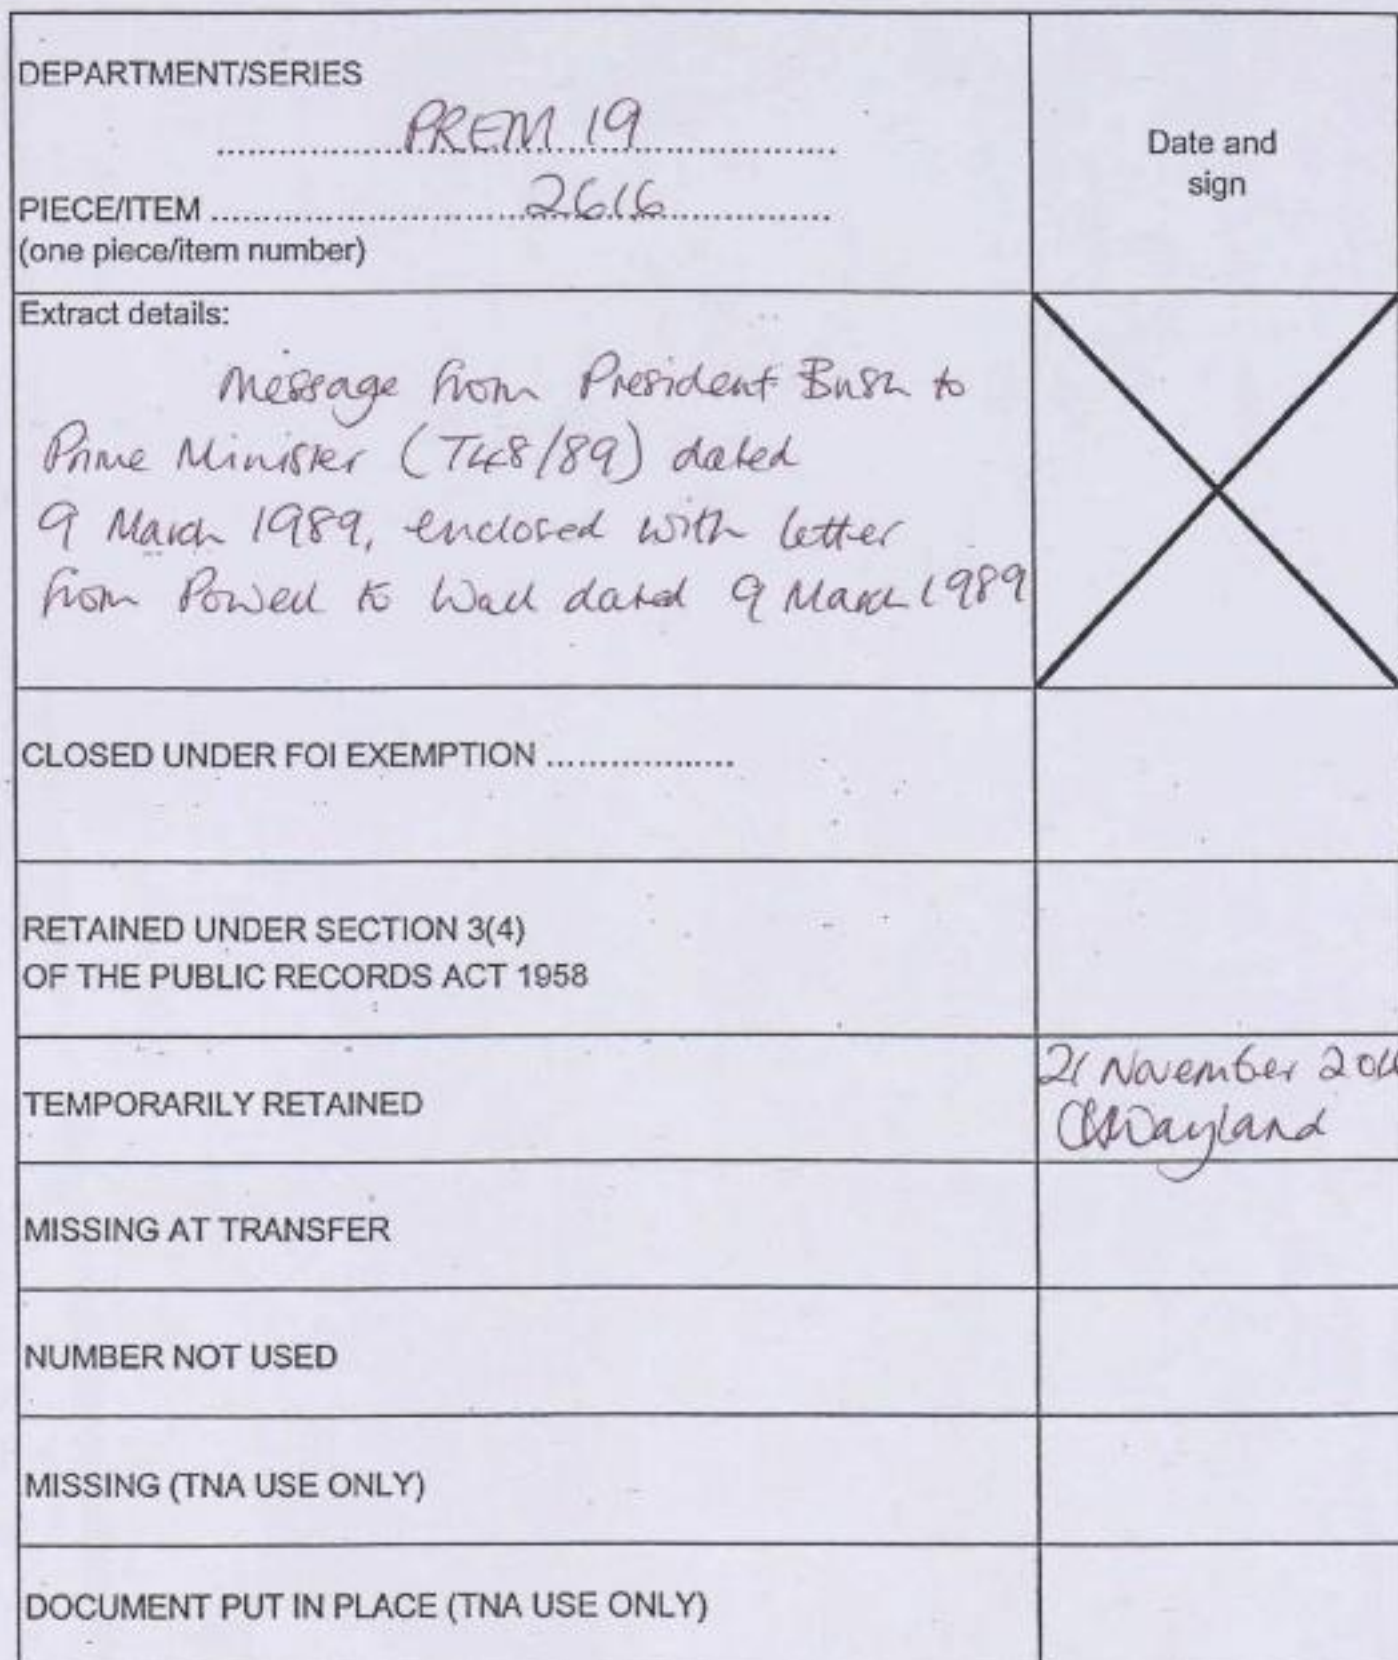 DEPARTMENT/SERIES
PREM 19
Date and
sign
PIECE/ITEM 2616
(one piece/item number)
Extract details:
Message from President Bush to
Prime Minister (T48/89) dated
9 March 1989, enclosed with letter
from Powell to Wall dated 9 March 1989
CLOSED UNDER FOI EXEMPTION
RETAINED UNDER SECTION 3(4)
OF THE PUBLIC RECORDS ACT 1958
TEMPORARILY RETAINED
21 November
Wayland
MISSING AT TRANSFER
NUMBER NOT USED
MISSING (TNA USE ONLY)
DOCUMENT PUT IN PLACE (TNA USE ONLY)